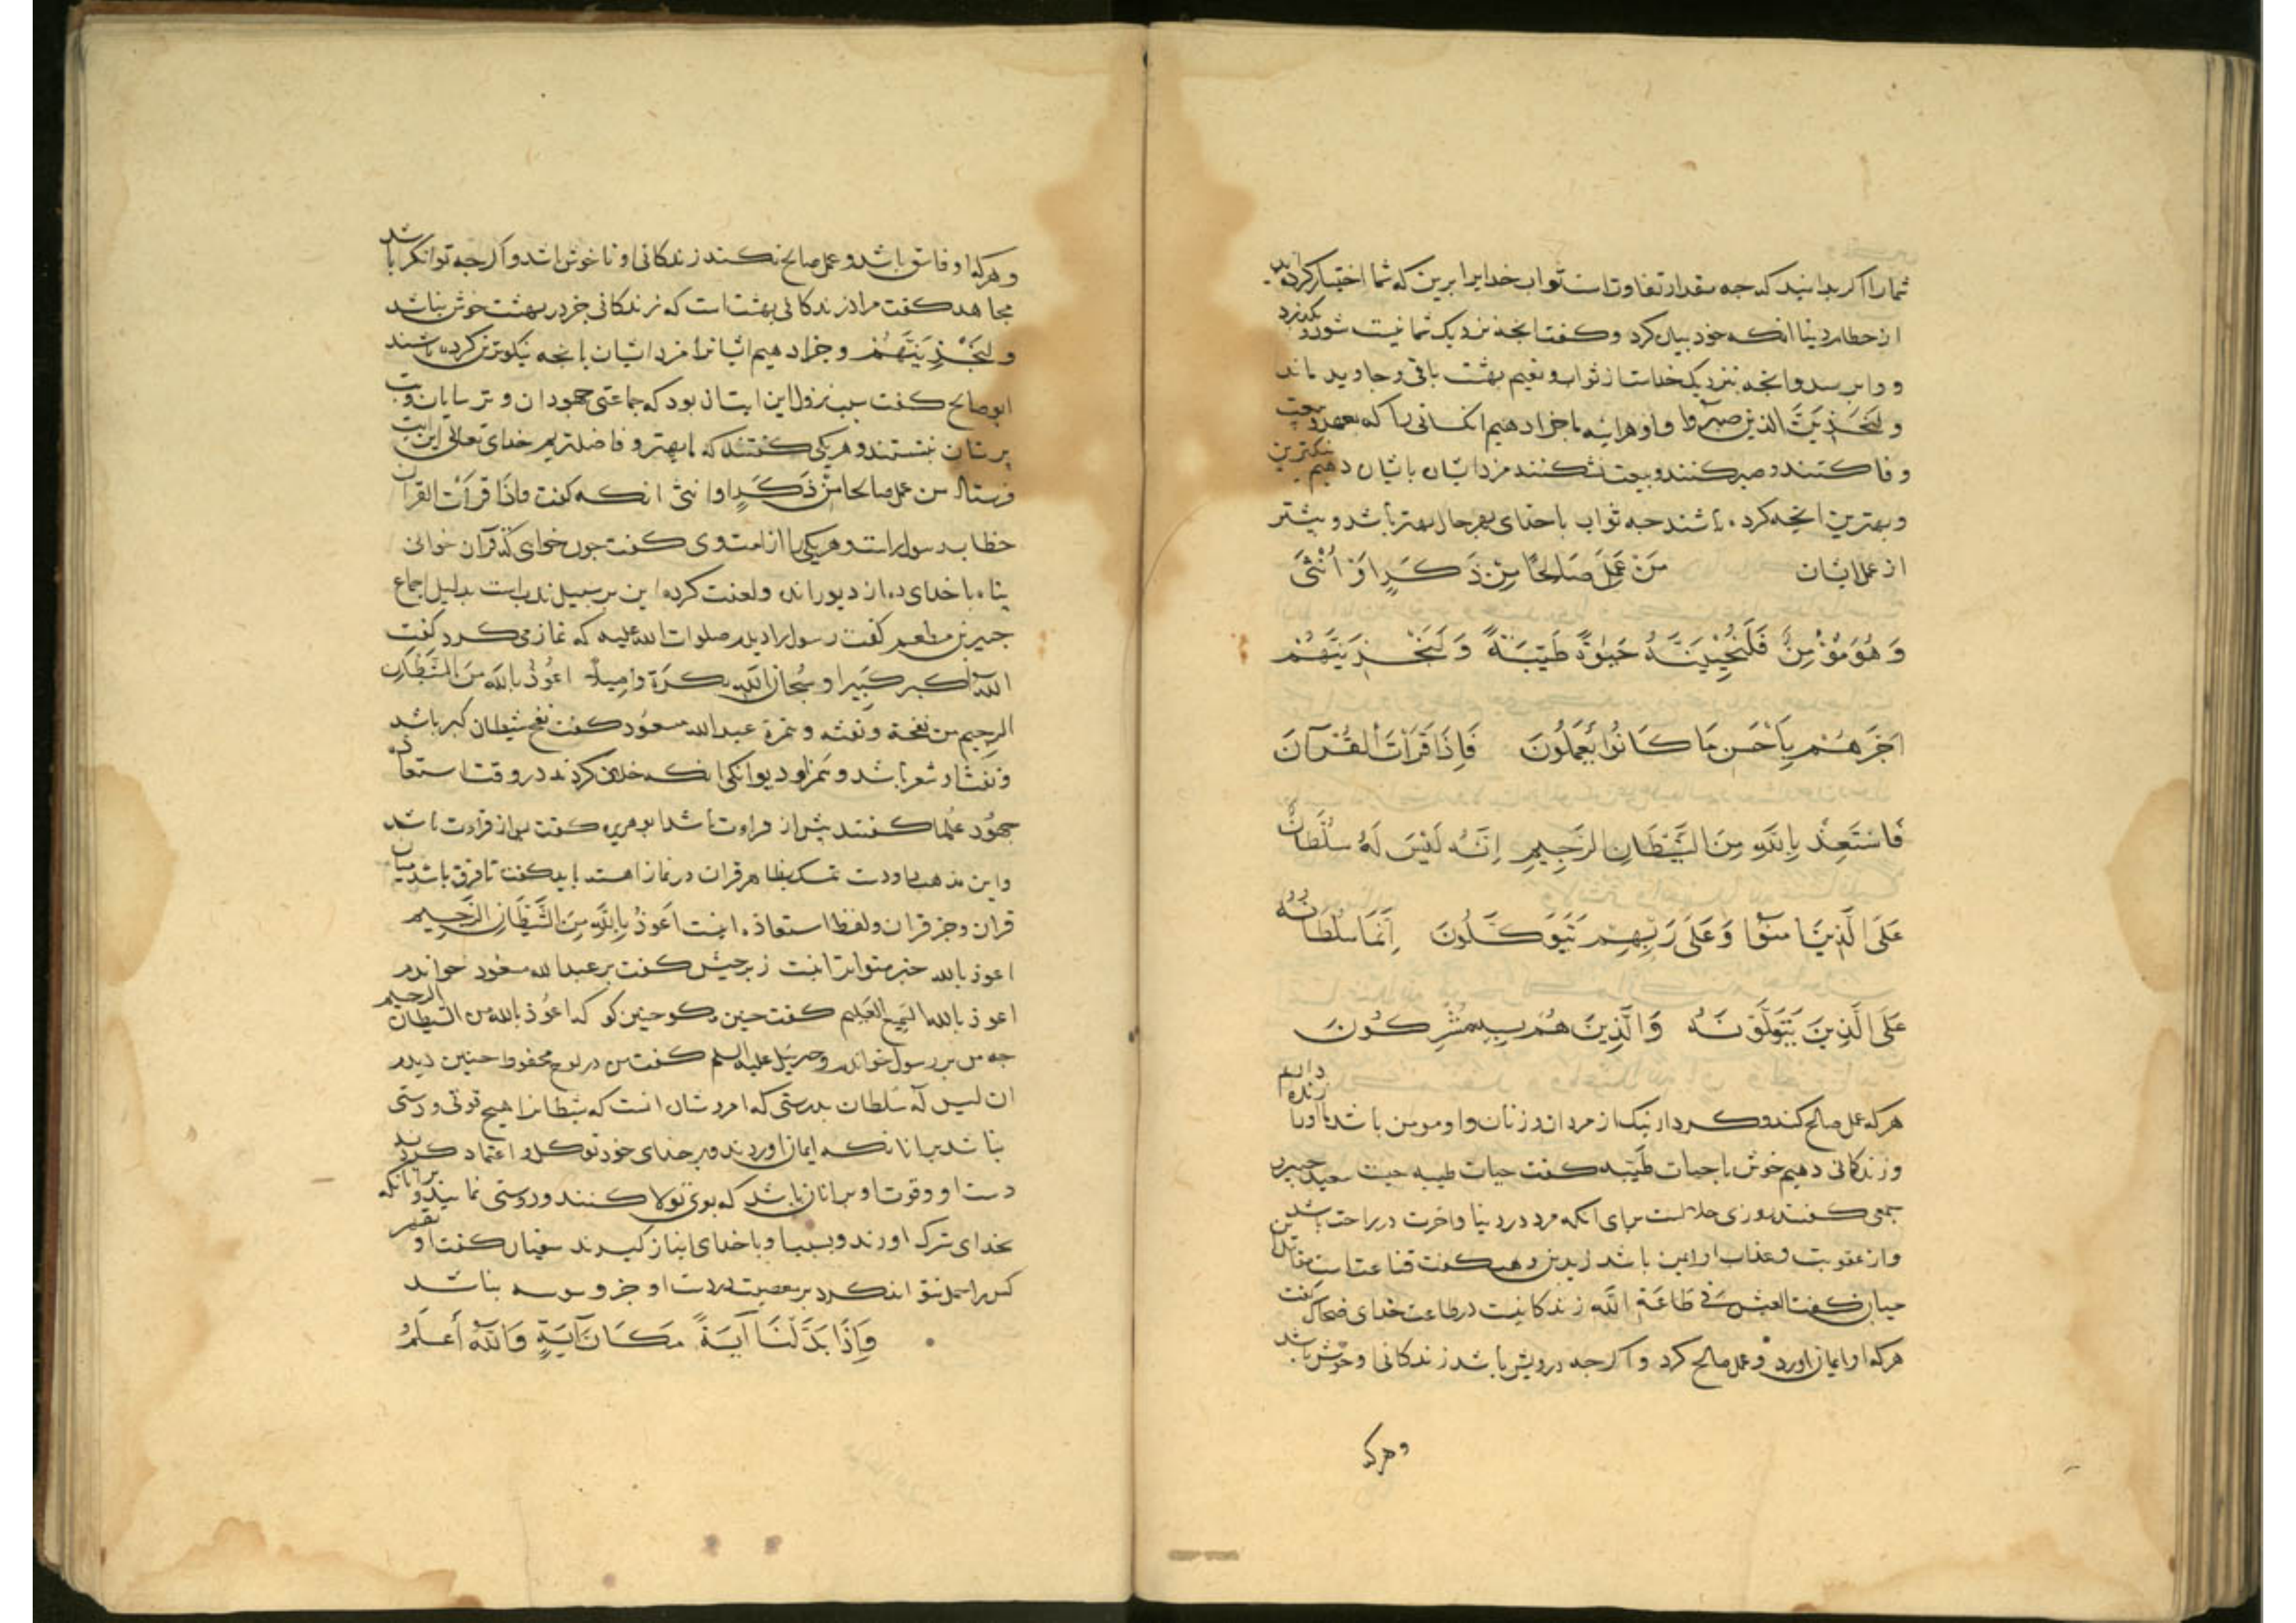 شما را اکر بدانید که جه مقدار تفاوت است ثواب خدایرا برین که شما اختیار کرده اید
از حطام دنیا انکه خود بیان کرد و کفت انجه نزدیک شمانیت شود و بکذرد
و وابرسد و انجه بنزدیک خداست از ثواب و نعیم بهشت باقی و جاوید ماند
و لنجزین الذین صبروا و او هراینه ما جزا دهیم انکسانی را که بعهد و بیعت
وفا کنند و صبر کنند و بیعت نشکنند مزد ایشان بایشان دهیم نیکوترین
و بهترین انجه کرده باشند جه ثواب باخدای بهرحال بهتر باشد و بیشتر
از عمل ایشان مَنْ عَمِلَ صَالِحًا مِنْ ذَكَرٍ اَوْ اُنْثَى
وَهُوَ مُؤْمِنٌ فَلَنُحْيِيَنَّهُ حَيٰوةً طَيِّبَةً وَلَنَجْزِيَنَّهُمْ
اَجْرَهُمْ بِاَحْسَنِ مَا كَانُوا يَعْمَلُونَ فَاِذَا قَرَاْتَ الْقُرْآنَ
فَاسْتَعِذْ بِاللَّهِ مِنَ الشَّيْطَانِ الرَّجِيمِ اِنَّهُ لَيْسَ لَهُ سُلْطَانٌ
عَلَى الَّذِينَ آمَنُوا وَعَلَى رَبِّهِمْ يَتَوَكَّلُونَ اِنَّمَا سُلْطَانُهُ
عَلَى الَّذِينَ يَتَوَلَّوْنَهُ وَالَّذِينَ هُمْ بِهِ مُشْرِكُونَ
هرکه عمل صالح کند و کردار نیک از مردان و زنان و او مومن باشد ما اورا زنده داریم
و زندکانی دهیم خوش با حیات طیبه کفت حیات طیبه جیت سعید جبیر
جمعی کفتند روزی حلالست برای انکه مرد در دنیا و اخرت در راحت باشد
و از عقوبت و عذاب او ایمن باشد زید بن وهب کفت قناعت است مقاتل بن
حیان کفت العیش فی طاعة الله زندکانیت در طاعت خدای ضحاک کفت
هرکه او ایمان اورد و عمل صالح کرد و اکر جه درویش باشد زندکانی او خوش باشد
وهرکه
و هرکه او فاسق باشد و عمل صالح نکند زندکانی او ناخوش باشد و اکر جه توانکر باشد
مجاهد کفت مراد زندکانی بهشت است که زندکانی جز در بهشت خوش نباشد
و لنجزینهم و جزا دهیم ایشانرا مزد ایشان بانجه نیکوترین کرده باشند
ابو صالح کفت سبب نزول این ایت ان بود که جماعتی جهودان و ترسایان و بت
پرستان بنشستند و هریکی کفتند که ما بهتر و فاضلتریم خدای تعالی این ایت
فرستاد من عمل صالحا من ذکر او انثی انکه کفت فاذا قرات القران
خطاب با رسول است و هریکی را از امت وی کفت جون خواهی که قرآن خوانی
پناه با خدای ده از دیو رانده و لعنت کرده این بر سبیل ندب است بدلیل اجماع
جبیر بن مطعم کفت رسول را دیدم صلوات الله علیه که نماز می کرد کفت
الله اکبر کبیرا و سبحان الله بکرة و اصیلا اعوذ بالله من الشیطان
الرجیم من نفخه و نفثه و همزه عبد الله مسعود کفت نفخ شیطان کبر باشد
و نفث او شعر باشد و همز او دیوانکی انکه خلاف کردند در وقت استعاذه
جمهور علما کفتند پیش از قراءت باشد ابو هریره کفت پس از قراءت باشد
و این مذهب داودست تمسک بظاهر قران در نماز اهسته باید کفت تا فرق باشد میان
قران و جز قران و لفظ استعاذه اینت اَعُوذُ بِاللَّهِ مِنَ الشَّيْطَانِ الرَّجِيمِ
اعوذ بالله خبر متواتر اینت زر حبیش کفت بر عبد الله مسعود خواندم
اعوذ بالله السمیع العلیم کفت جنین مکو جنین کو که اعوذ بالله من الشیطان الرجیم
جه من بر رسول خواندم و جبریل علیه السلم کفت من در لوح محفوظ جنین دیدم
ان لیس له سلطان بدرستی که امر و شان انست که شیطانرا هیج قوتی و دستی
نباشد بر انانکه ایمان اوردند و بر خدای خود توکل و اعتماد کردند
دست او و قوت او بر انان باشد که بوی تولا کنند و دوستی نمایند و بر انانکه
بخدای شرک اورند و بسبب او با خدای انباز کیرند سفیان کفت او
کس را حمل نتواند کرد بر معصیت و دست او جز وسوسه نباشد
وَاِذَا بَدَّلْنَا آيَةً مَكَانَ آيَةٍ وَاللَّهُ أَعْلَمُ